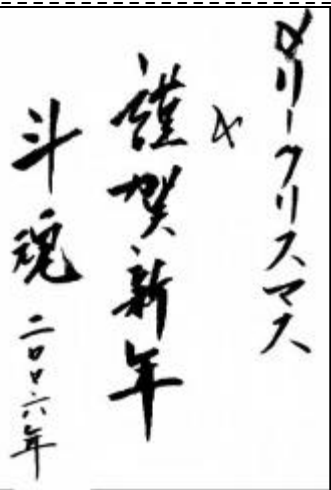 メリークリスマス
&
謹賀新年
斗魂 二〇〇六年